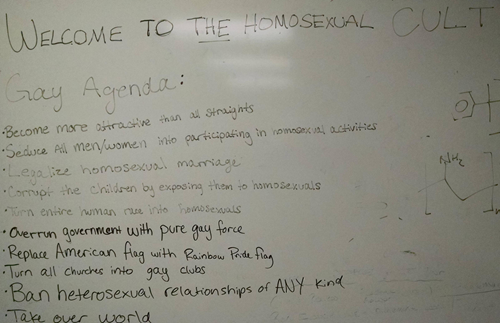 WELCOME TO THE HOMOSEXUAL CULT
Gay Agenda:
• Become more attractive than all straights
• Seduce All men/women into participating in homosexual activities
• Legalize homosexual marriage
• Corrupt the children by exposing them to homosexuals
• Turn entire human race into homosexuals
• Overrun government with pure gay force
• Replace American flag with Rainbow Pride flag
• Turn all churches into gay clubs
• Ban heterosexual relationships of ANY kind
• Take over world
NH2